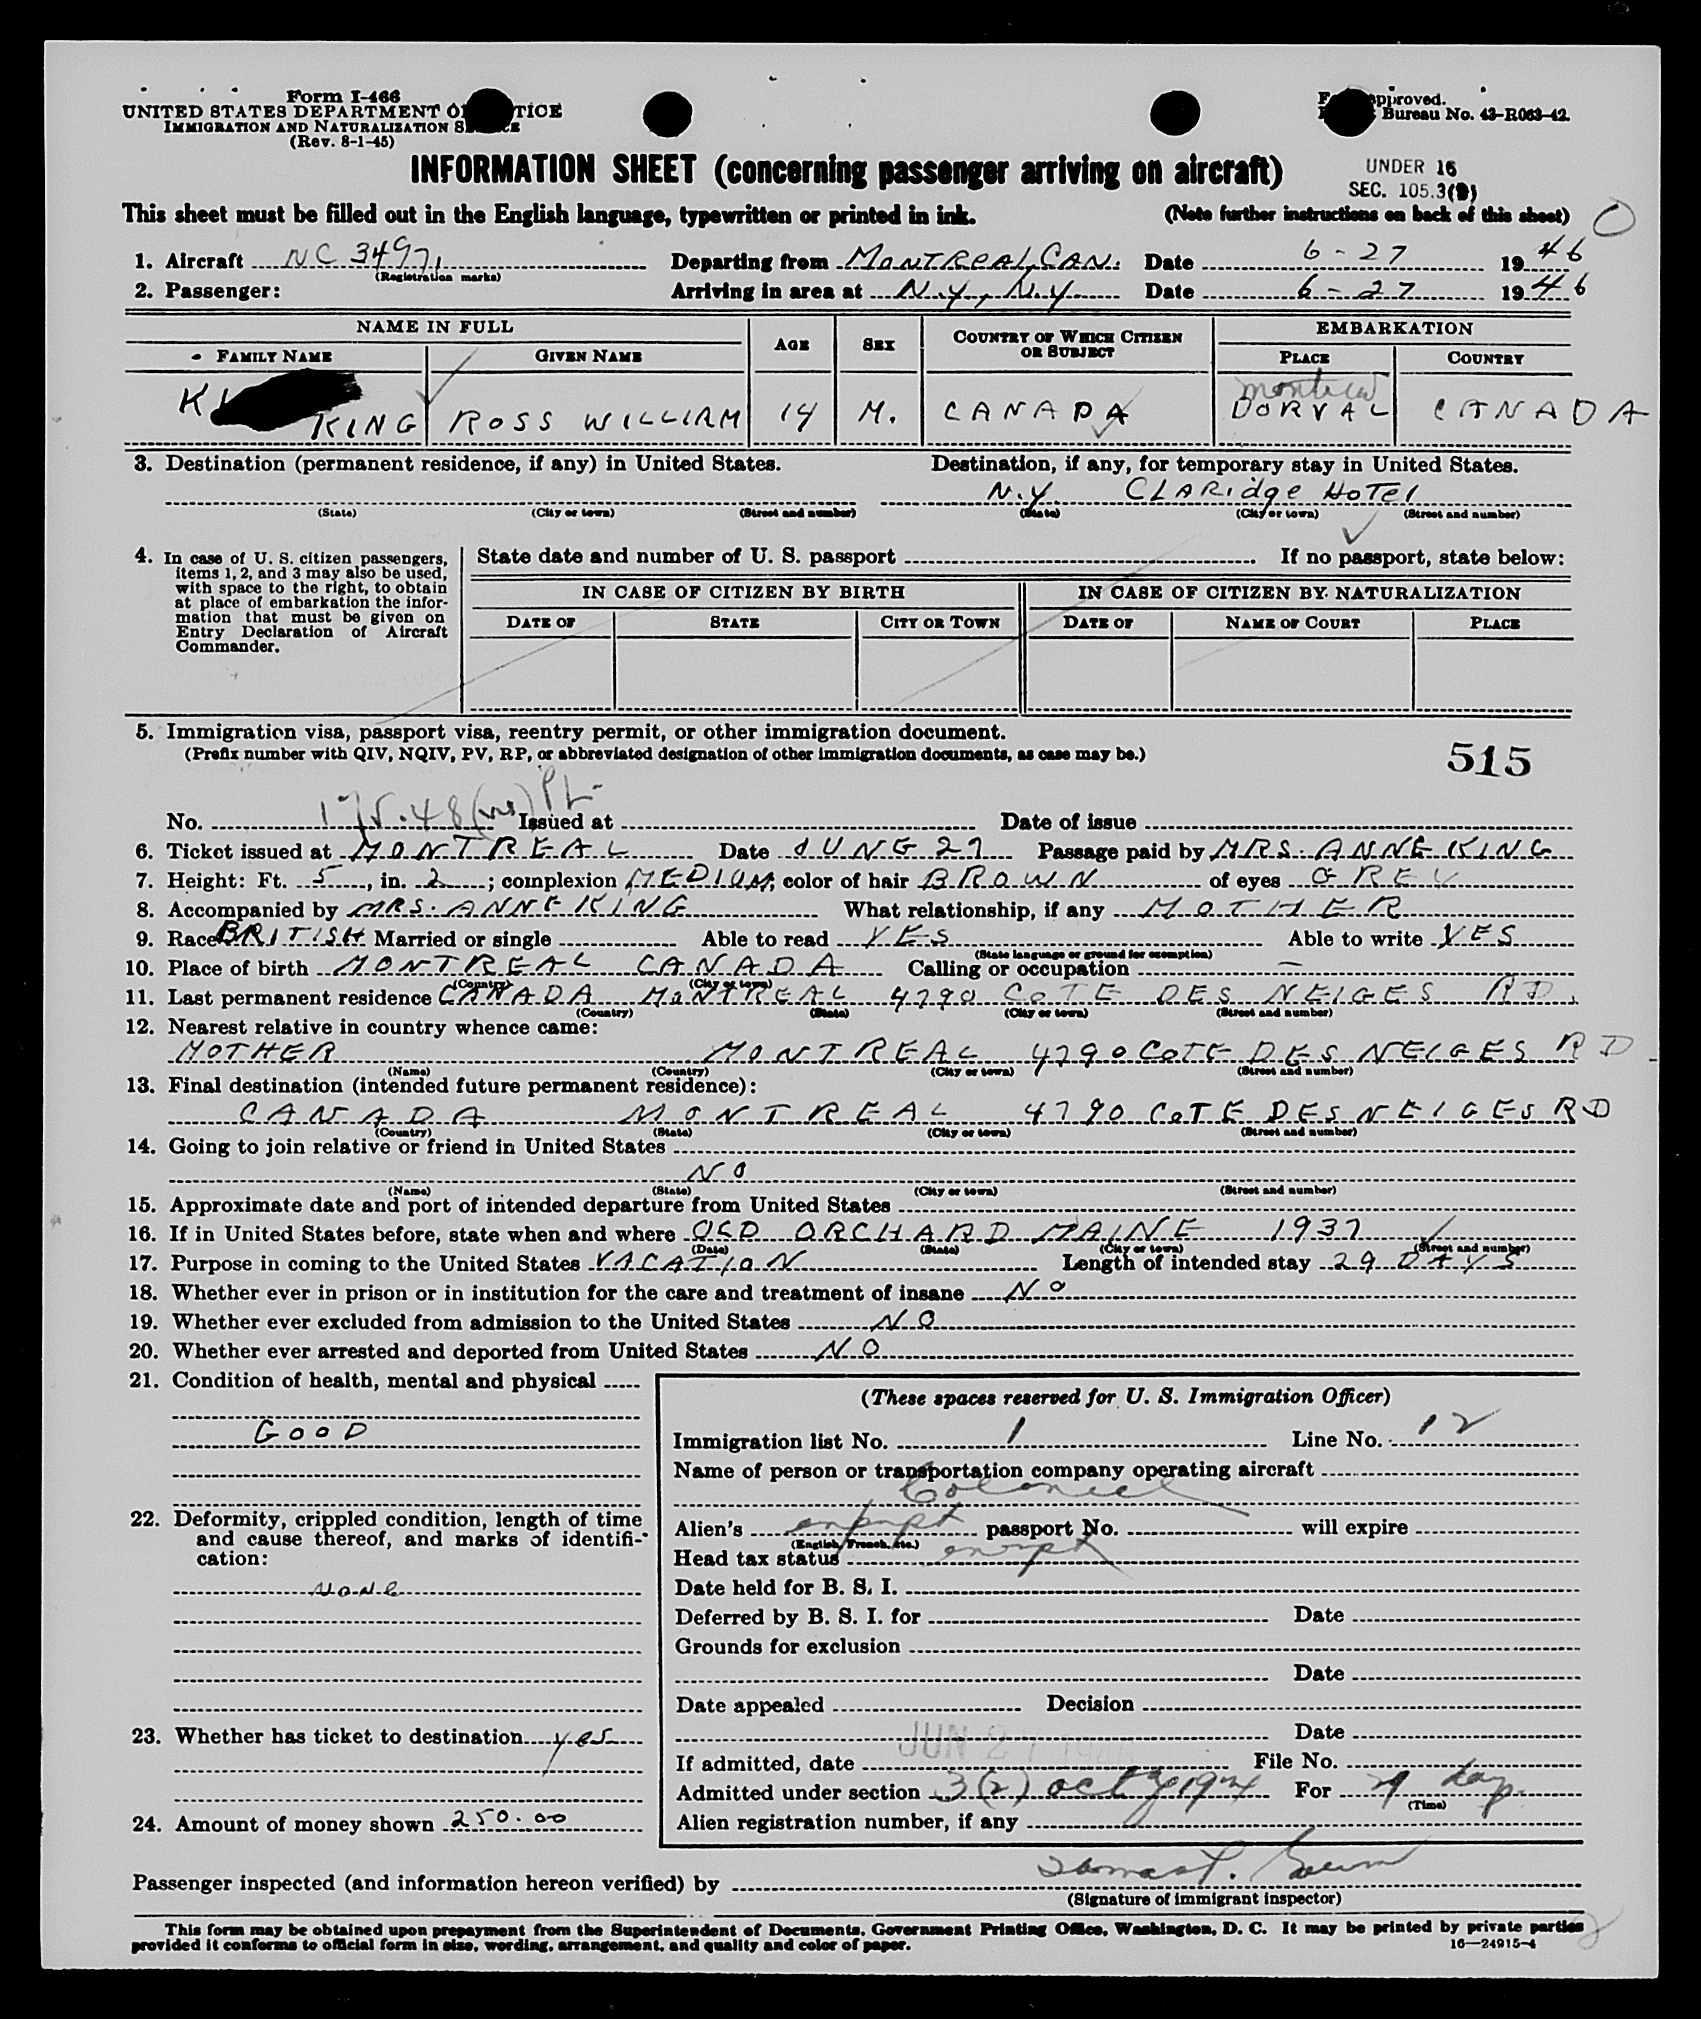 Form I-466
UNITED STATES DEPARTMENT OF JUSTICE
IMMIGRATION AND NATURALIZATION SERVICE
(Rev. 8-1-45)
Form approved.
Budget Bureau No. 43-R063-42.
INFORMATION SHEET (concerning passenger arriving on aircraft)
UNDER 16
SEC. 105.3(B)
This sheet must be filled out in the English language, typewritten or printed in ink.
(Note further instructions on back of this sheet)
1. Aircraft NC 34971 Departing from MONTREAL, CAN. Date 6-27 1946
(Registration marks)
2. Passenger: Arriving in area at N.Y., N.Y. Date 6-27 1946
NAME IN FULL AGE SEX COUNTRY OF WHICH CITIZEN OR SUBJECT EMBARKATION
FAMILY NAME GIVEN NAME PLACE COUNTRY
Montreal
KING ROSS WILLIAM 14 M. CANADA DORVAL CANADA
3. Destination (permanent residence, if any) in United States. Destination, if any, for temporary stay in United States.
N.Y. CLARIDGE HOTEL
(State) (City or town) (Street and number) (State) (City or town) (Street and number)
4. In case of U. S. citizen passengers, items 1, 2, and 3 may also be used, with space to the right, to obtain at place of embarkation the information that must be given on Entry Declaration of Aircraft Commander.
State date and number of U. S. passport If no passport, state below:
IN CASE OF CITIZEN BY BIRTH IN CASE OF CITIZEN BY NATURALIZATION
DATE OF STATE CITY OR TOWN DATE OF NAME OF COURT PLACE
5. Immigration visa, passport visa, reentry permit, or other immigration document.
(Prefix number with QIV, NQIV, PV, RP, or abbreviated designation of other immigration documents, as case may be.)
515
No. 175.48 Issued at Date of issue
6. Ticket issued at MONTREAL Date JUNE 27 Passage paid by MRS. ANNE KING
7. Height: Ft. 5, in. 2; complexion MEDIUM, color of hair BROWN of eyes GREY
8. Accompanied by MRS. ANNE KING What relationship, if any MOTHER
9. Race BRITISH Married or single Able to read YES Able to write YES
(State language or ground for exemption)
10. Place of birth MONTREAL CANADA Calling or occupation —
(Country) (City or town)
11. Last permanent residence CANADA MONTREAL 4790 COTE DES NEIGES RD.
(Country) (State) (City or town) (Street and number)
12. Nearest relative in country whence came:
MOTHER MONTREAL 4790 COTE DES NEIGES RD.
(Name) (Country) (City or town) (Street and number)
13. Final destination (intended future permanent residence):
CANADA MONTREAL 4790 COTE DES NEIGES RD
(Country) (State) (City or town) (Street and number)
14. Going to join relative or friend in United States
NO
(Name) (State) (City or town) (Street and number)
15. Approximate date and port of intended departure from United States
16. If in United States before, state when and where OLD ORCHARD MAINE 1937
(Date) (State) (City or town) (Street and number)
17. Purpose in coming to the United States VACATION Length of intended stay 29 DAYS
18. Whether ever in prison or in institution for the care and treatment of insane NO
19. Whether ever excluded from admission to the United States NO
20. Whether ever arrested and deported from United States NO
21. Condition of health, mental and physical
GOOD
22. Deformity, crippled condition, length of time and cause thereof, and marks of identification:
None
23. Whether has ticket to destination yes
24. Amount of money shown 250.00
(These spaces reserved for U. S. Immigration Officer)
Immigration list No. 1 Line No. 12
Name of person or transportation company operating aircraft
Colonial
Alien's exempt passport No. will expire
(English, French, etc.)
Head tax status exempt
Date held for B. S. I.
Deferred by B. S. I. for Date
Grounds for exclusion
Date
Date appealed Decision
Date
If admitted, date JUN 27 1946 File No.
Admitted under section 3(2) act of 1924 For 29 days
(Time)
Alien registration number, if any
Passenger inspected (and information hereon verified) by Thomas P.
(Signature of immigrant inspector)
This form may be obtained upon prepayment from the Superintendent of Documents, Government Printing Office, Washington, D. C. It may be printed by private parties
provided it conforms to official form in size, wording, arrangement, and quality and color of paper.
16—24915-4